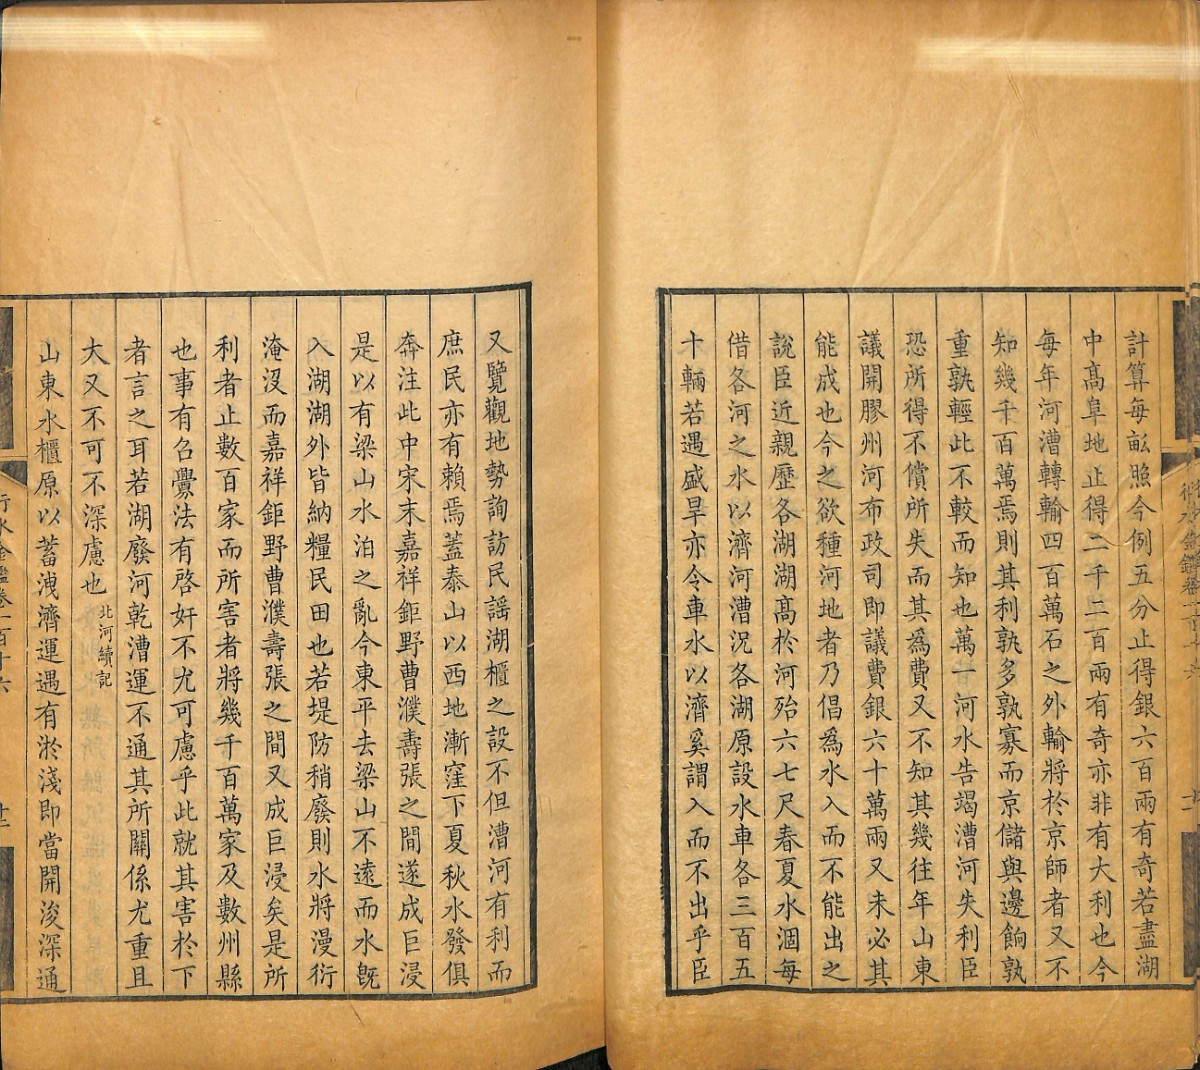 計算每畝照今例五分止得銀六百兩有奇若盡湖
中高阜地止得二千二百兩有奇亦非有大利也今
每年河漕轉輸四百萬石之外輸將於京師者又不
知幾千百萬焉則其利孰多孰寡而京儲與邊餉孰
重孰輕此不較而知也萬一河水告竭漕河失利臣
恐所得不償所失而其為費又不知其幾往年山東
議開膠州河布政司即議費銀六十萬兩又未必其
能成也今之欲種河地者乃倡為水入而不能出之
說臣近親歷各湖湖高於河殆六七尺春夏水涸每
借各河之水以濟河漕況各湖原設水車各三百五
十輛若遇盛旱亦令車水以濟奚謂入而不出乎臣
又覽觀地勢詢訪民謡湖櫃之設不但漕河有利而
庶民亦有賴焉蓋泰山以西地漸窪下夏秋水發俱
奔注此中宋末嘉祥鉅野曹濮壽張之間遂成巨浸
是以有梁山水泊之亂今東平去梁山不遠而水旣
入湖湖外皆納糧民田也若堤防稍廢則水將漫衍
淹沒而嘉祥鉅野曹濮壽張之間又成巨浸矣是所
利者止數百家而所害者將幾千百萬家及數州縣
也事有召釁法有啓奸不尤可慮乎此就其害於下
者言之耳若湖廢河乾漕運不通其所關係尤重且
大又不可不深慮也北河續記
山東水櫃原以蓄洩濟運遇有淤淺即當開浚深通
行水金鑑卷一百十六